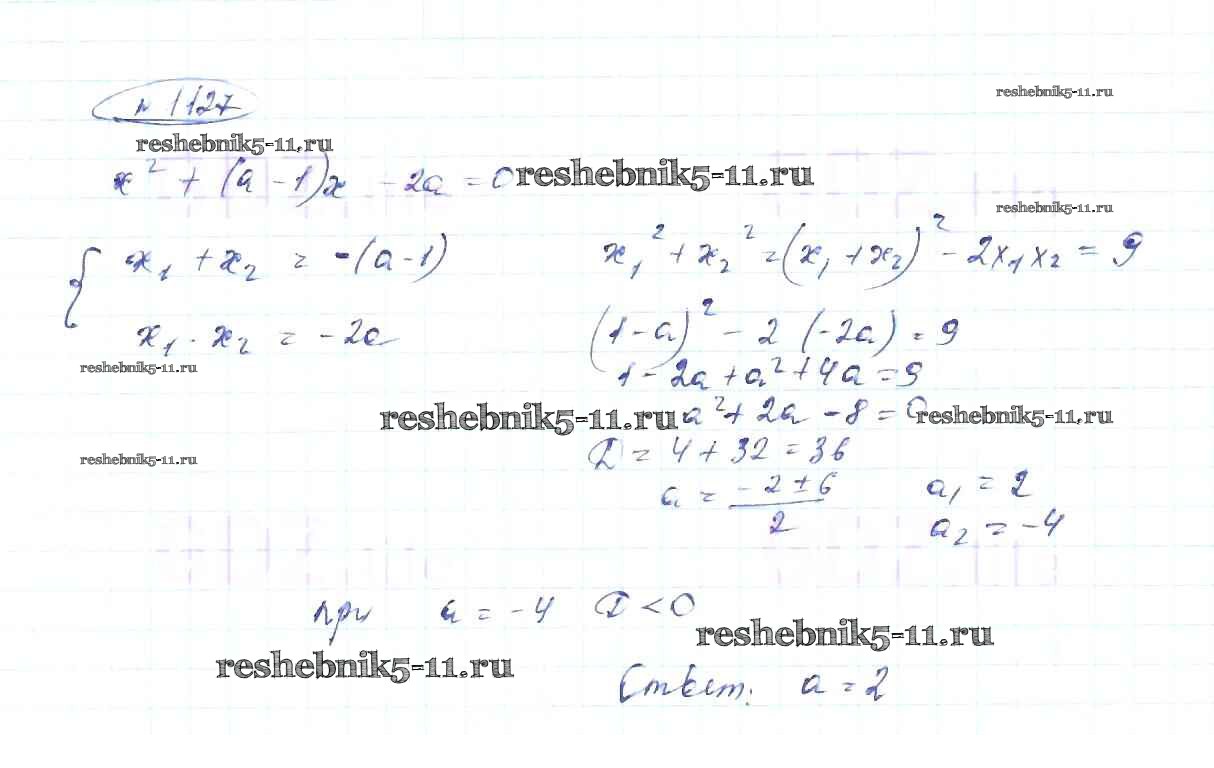 № 1127
reshebnik5-11.ru
reshebnik5-11.ru
x² + (a - 1)x - 2a = 0 reshebnik5-11.ru
reshebnik5-11.ru
{ x₁ + x₂ = -(a-1)
x₁ · x₂ = -2a
x₁² + x₂² = (x₁ + x₂)² - 2x₁x₂ = 9
(1-a)² - 2 (-2a) = 9
1 - 2a + a² + 4a = 9
reshebnik5-11.ru
reshebnik5-11.ru a² + 2a - 8 = 0 reshebnik5-11.ru
reshebnik5-11.ru
D = 4 + 32 = 36
a = (-2 ± 6)/2
a₁ = 2
a₂ = -4
при a = -4 D < 0
reshebnik5-11.ru
reshebnik5-11.ru
Ответ: a = 2